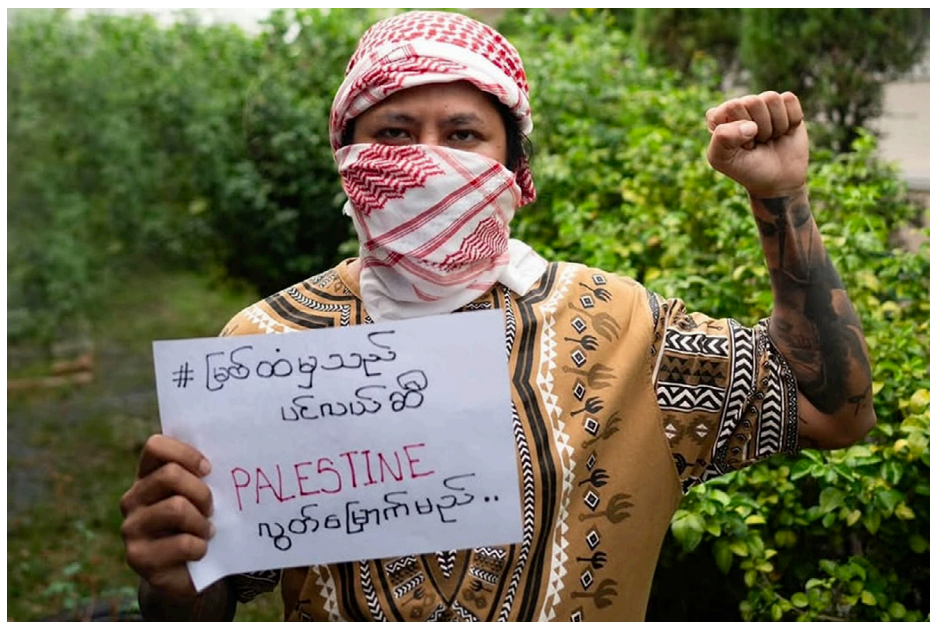 #မြစ်ထံမှသည်
ပင်လယ်ဆီ
PALESTINE
လွတ်မြောက်မည်..